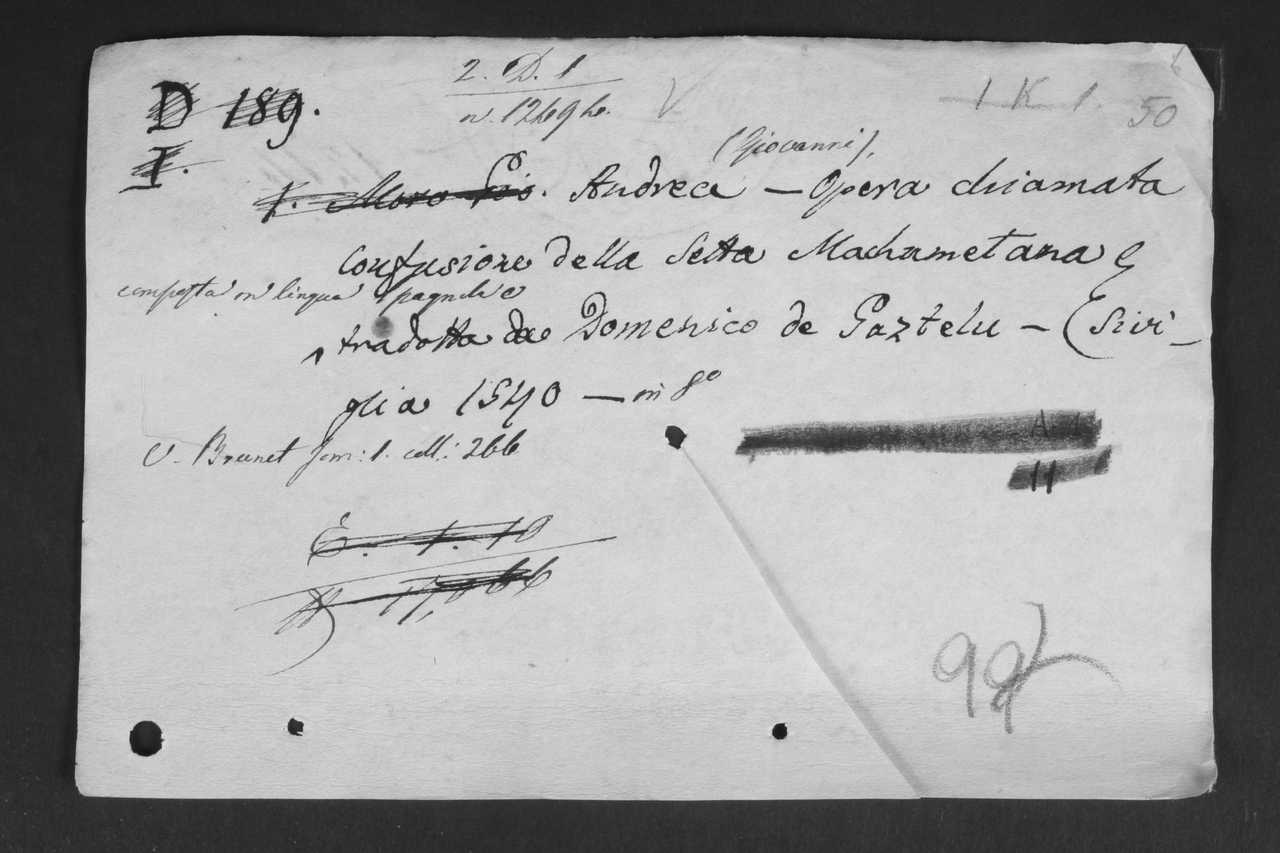 2. D. 1
D 189.
n. 12696.
V
1 K 1.
50
I.
(Giovanni),
Andrea — Opera chiamata
Confusione della Setta Machumetana
composta in lingua spagnola e
tradotta da Domenico de Gaztelu — (Sivi_
glia 1540 — in 8º
V. Brunet tom: 1. coll: 266
A. 1
11
E. 1. 10
99